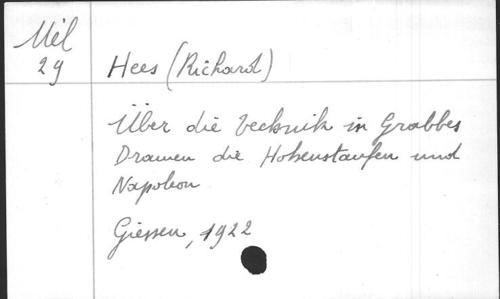 Mél
29
Hees (Richard)
Über die Technik in Grabbes
Dramen die Hohenstaufen und
Napoleon
Giessen, 1922